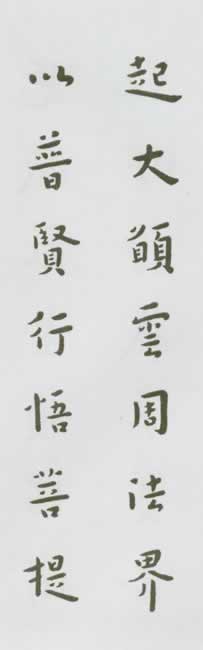 起大願雲周法界
以普賢行悟菩提